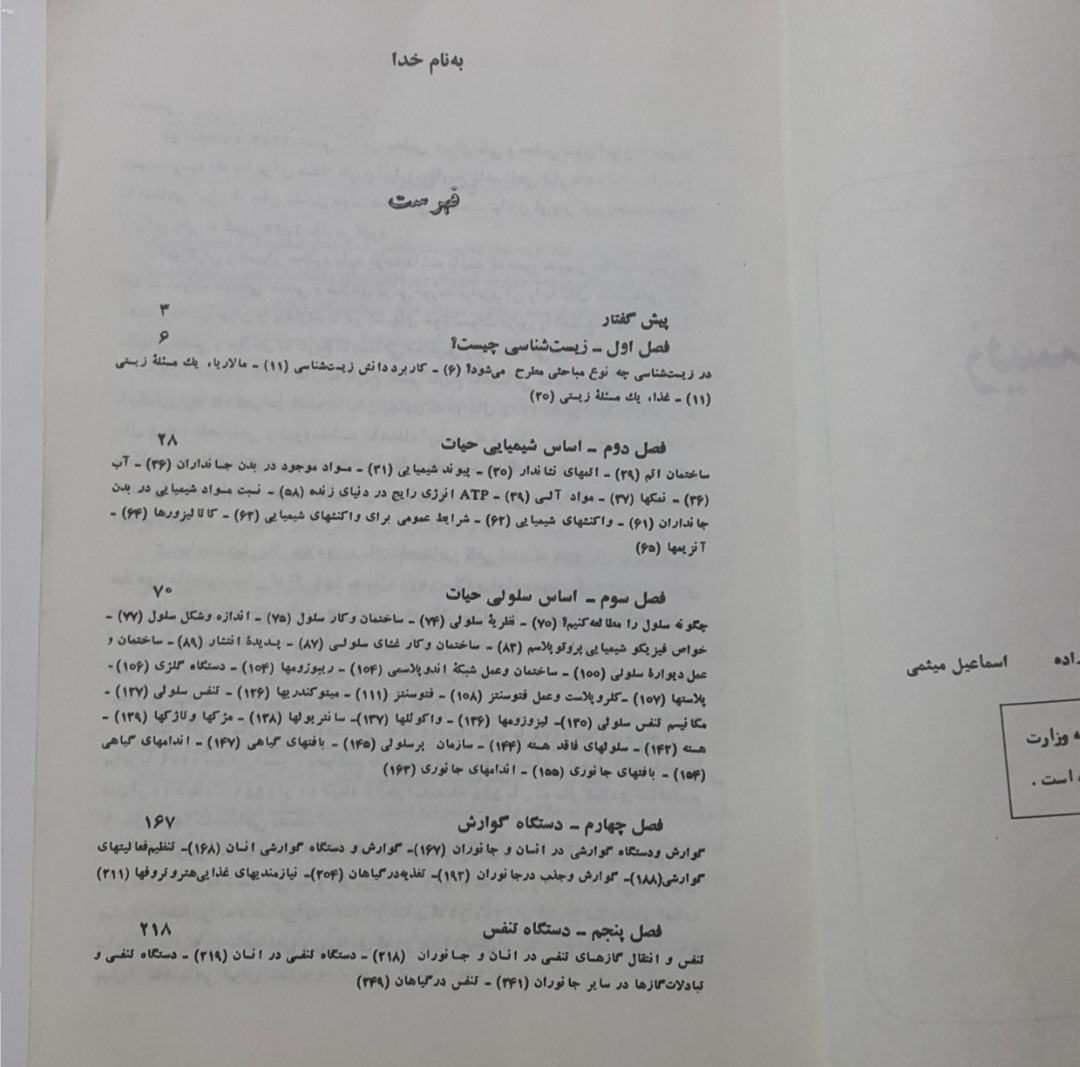 به‌نام خدا
فهرست
پیش گفتار ۳
فصل اول ـ زیست‌شناسی چیست؟ ۶
در زیست‌شناسی چه نوع مباحثی مطرح می‌شود؟ (۶) ـ کاربرد دانش زیست‌شناسی (۱۱) ـ مالاریا، یك مسئلهٔ زیستی
(۱۱) ـ غذا، یك مسئلهٔ زیستی (۲۰)
فصل دوم ـ اساس شیمیایی حیات ۲۸
ساختمان اتم (۲۹) ـ اتمهای نشاندار (۳۰) ـ پیوند شیمیایی (۳۱) ـ مـواد موجود در بدن جـانداران (۳۶) ـ آب
(۳۶) ـ نمکها (۳۷) ـ مواد آلـی (۳۹) ـ ATP انرژی رایج در دنیای زنده (۵۸) ـ نسبت مـواد شیمیایی در بدن
جانداران (۶۱) ـ واکنشهای شیمیایی (۶۲) ـ شرایط عمومی برای واکنشهای شیمیایی (۶۲) ـ کاتالیزورها (۶۴) ـ
آنزیمها (۶۵)
فصل سوم ـ اساس سلولی حیات ۷۰
چگونه سلول را مطالعه‌کنیم؟ (۷۰) ـ نظریهٔ سلولی (۷۴) ـ ساختمان وکار سلول (۷۵) ـ اندازه وشکل سلول (۷۷) ـ
خواص فیزیکو شیمیایی پروتوپلاسم (۸۳) ـ ساختمان وکار غشای سلولـی (۸۷) ـ پـدیدهٔ انتشار (۸۹) ـ ساختمان و
عمل دیوارهٔ سلولی (۱۰۰) ـ ساختمان وعمل شبکهٔ اندوپلاسمی (۱۰۴) ـ ریبوزومها (۱۰۴) ـ دستگاه گلژی (۱۰۶) ـ
پلاستها (۱۰۷) ـ کلروپلاست وعمل فتوسنتز (۱۰۸) ـ فتوسنتز (۱۱۱) ـ میتوکندریها (۱۲۶) ـ تنفس سلولی (۱۲۷) ـ
مکانیسم تنفس سلولی (۱۳۰)ـ لیزوزومها (۱۳۶) ـ واکوئلها (۱۳۷)ـ سانتریولها (۱۳۸) ـ مژکها وتاژکها (۱۳۹) ـ
هسته (۱۴۲) ـ سلولهای فاقد هسته (۱۴۴) ـ سازمان پرسلولی (۱۴۵) ـ بافتهای گیاهی (۱۴۷) ـ اندامهای گیاهی
(۱۵۴) ـ بافتهای جانوری (۱۵۵) ـ اندامهای جانوری (۱۶۳)
فصل چهارم ـ دستگاه گوارش ۱۶۷
گوارش ودستگاه گوارشی در انسان و جانوران (۱۶۷)ـ گوارش و دستگاه گوارشی انسان (۱۶۸)ـ تنظیم‌فعالیتهای
گوارشی(۱۸۸)ـ گوارش وجذب درجانوران (۱۹۲)ـ تغذیه‌درگیاهان (۲۰۴)ـ نیازمندیهای غذایی‌هتروتروفها (۲۱۱)
فصل پنجم ـ دستگاه تنفس ۲۱۸
تنفس و انتقال گازهـای تنفسی در انسان و جـانوران (۲۱۸) ـ دستگاه تنفسی در انسان (۲۱۹) ـ دستگاه تنفسی و
تبادلات‌گازها در سایر جانوران (۲۴۱) ـ تنفس درگیاهان (۲۴۹)
اسماعیل میثمی
وزارت
است .